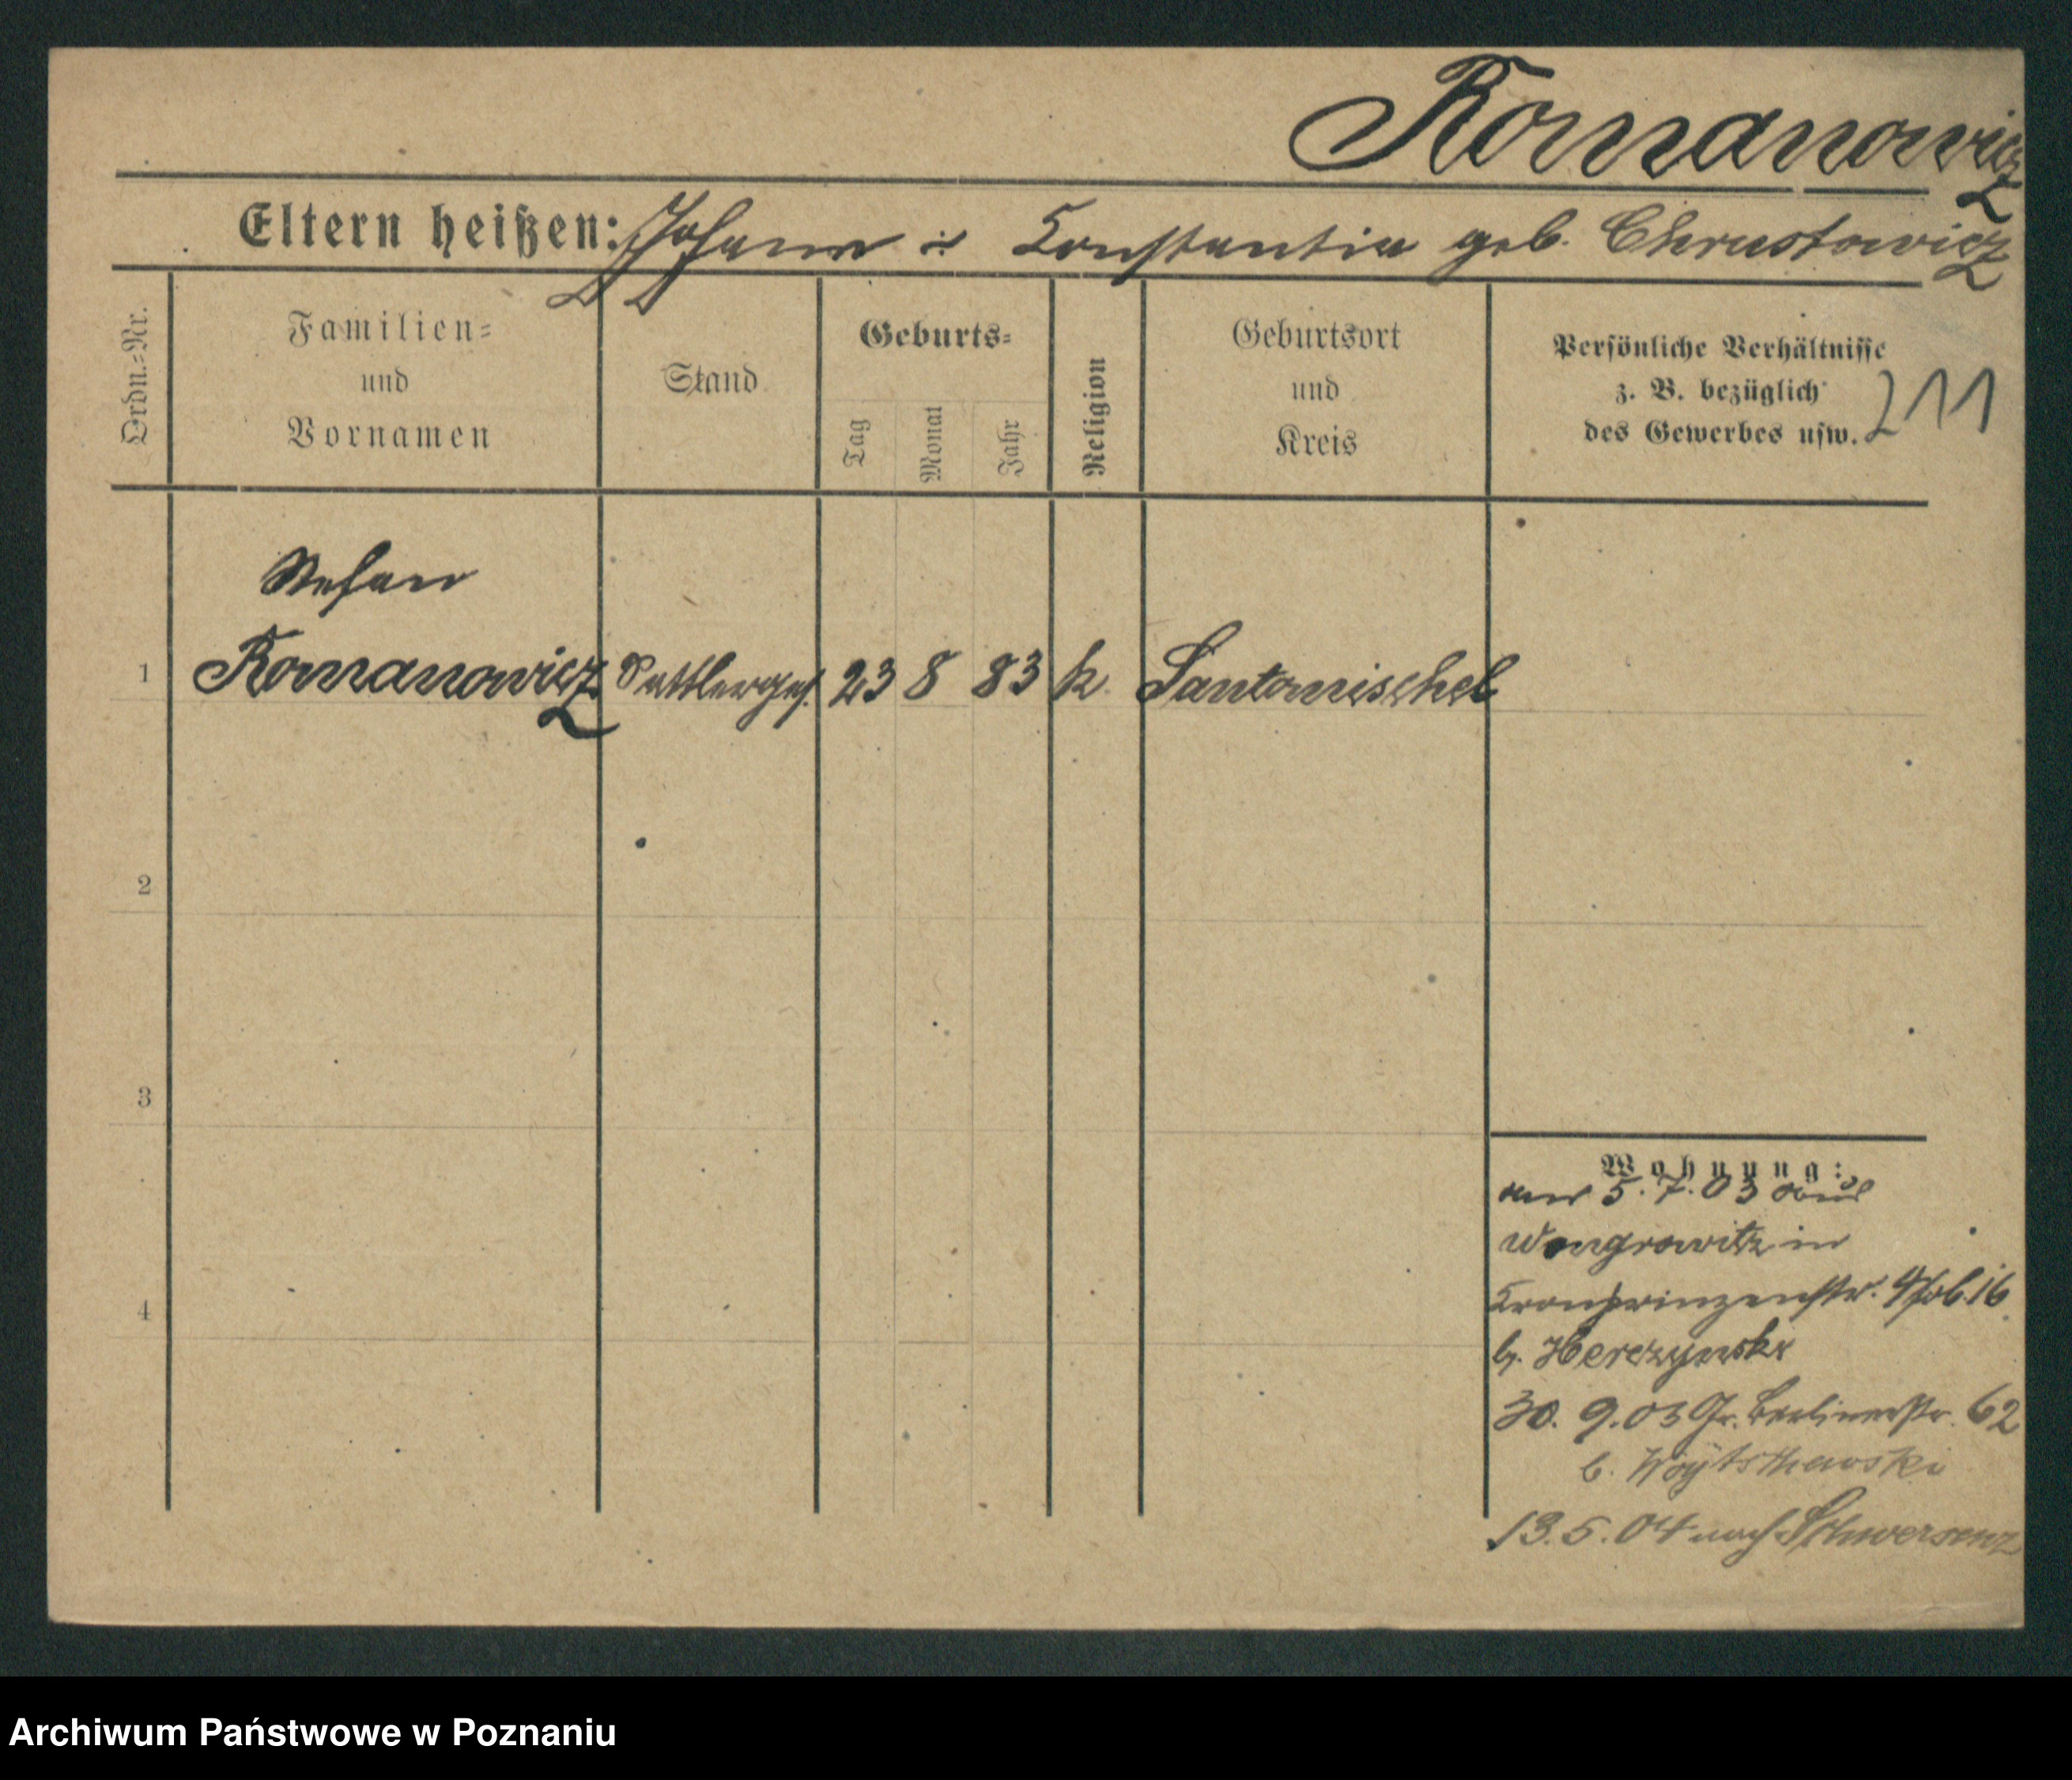 Romanowicz
Eltern heißen: Johann u Constantia geb. Chrustowicz
Ordn.=Nr.
Familien=
und
Vornamen
Stand
Geburts=
Tag
Monat
Jahr
Religion
Geburtsort
und
Kreis
Persönliche Verhältnisse
z. B. bezüglich
des Gewerbes usw.
211
Stefan
1 Romanowicz Sattlerges. 23 8 83 k Santomischel
2
3
4
Wohnung:
am 5.7.03 aus
Wongrowitz in
Kronprinzenstr. 16
b.
30. 9.03 Gr. Berlinerstr. 62
b.
13.5.04 nach Schwersenz
Archiwum Państwowe w Poznaniu